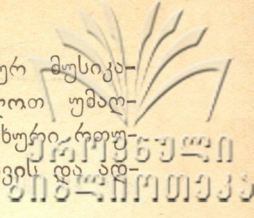 ურ მუსიკა-
ოთ უმაღ-
ხური რთუ-
ვის და აღ-
ეროვნული
ბიბლიოთეკა